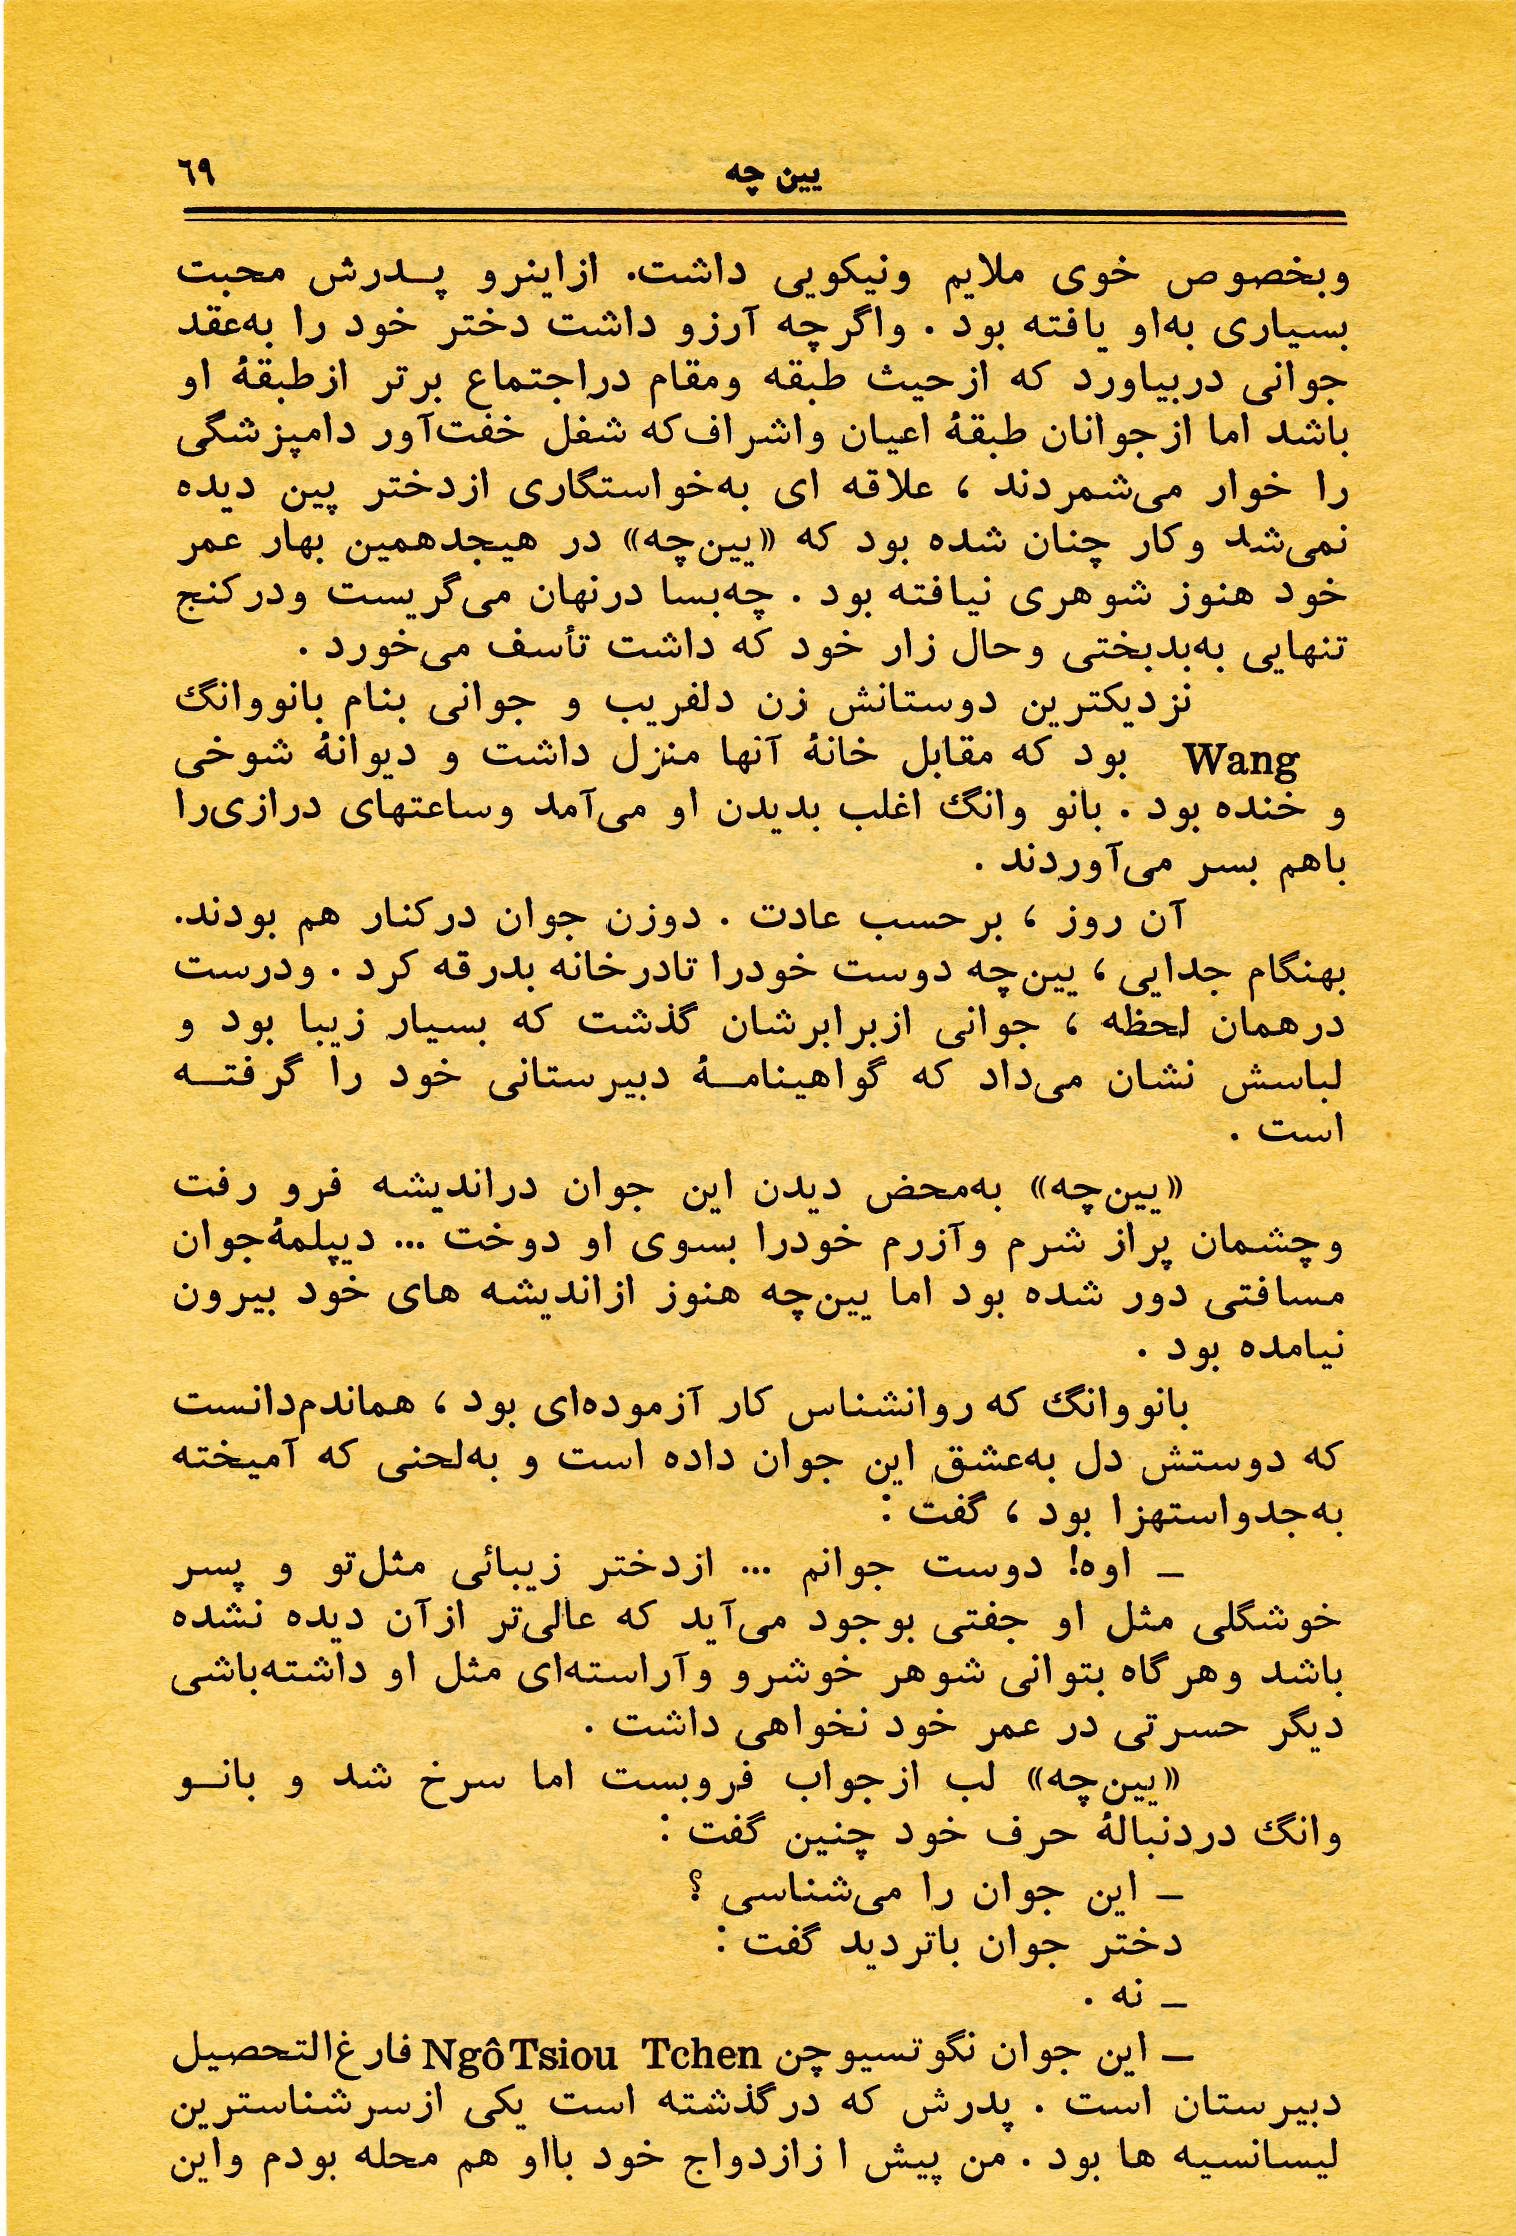 یین چه
٦٩
وبخصوص خوی ملایم ونیکویی داشت. ازاینرو پـدرش محبت
بسیاری به‌او یافته بود . واگرچه آرزو داشت دختر خود را به‌عقد
جوانی دربیاورد که ازحیث طبقه ومقام دراجتماع برتر ازطبقهٔ او
باشد اما ازجوانان طبقهٔ اعیان واشراف‌که شغل خفت‌آور دامپزشگی
را خوار می‌شمردند ، علاقه ای به‌خواستگاری ازدختر پین دیده
نمی‌شد وکار چنان شده بود که «یین‌چه» در هیجدهمین بهار عمر
خود هنوز شوهری نیافته بود . چه‌بسا درنهان می‌گریست ودرکنج
تنهایی به‌بدبختی وحال زار خود که داشت تأسف می‌خورد .
نزدیکترین دوستانش زن دلفریب و جوانی بنام بانووانگ
Wang بود که مقابل خانهٔ آنها منزل داشت و دیوانهٔ شوخی
و خنده بود . بانو وانگ اغلب بدیدن او می‌آمد وساعتهای درازی‌را
باهم بسر می‌آوردند .
آن روز ، برحسب عادت . دوزن جوان درکنار هم بودند.
بهنگام جدایی ، یین‌چه دوست خودرا تادرخانه بدرقه کرد . ودرست
درهمان لحظه ، جوانی ازبرابرشان گذشت که بسیار زیبا بود و
لباسش نشان می‌داد که گواهینامـهٔ دبیرستانی خود را گرفتـه
است .
«یین‌چه» به‌محض دیدن این جوان دراندیشه فرو رفت
وچشمان پراز شرم وآزرم خودرا بسوی او دوخت ... دیپلمهٔ‌جوان
مسافتی دور شده بود اما یین‌چه هنوز ازاندیشه های خود بیرون
نیامده بود .
بانووانگ که روانشناس کار آزموده‌ای بود ، هماندم‌دانست
که دوستش دل به‌عشق این جوان داده است و به‌لحنی که آمیخته
به‌جدواستهزا بود ، گفت :
ـ اوه! دوست جوانم ... ازدختر زیبائی مثل‌تو و پسر
خوشگلی مثل او جفتی بوجود می‌آید که عالی‌تر ازآن دیده نشده
باشد وهرگاه بتوانی شوهر خوشرو وآراسته‌ای مثل او داشته‌باشی
دیگر حسرتی در عمر خود نخواهی داشت .
«یین‌چه» لب ازجواب فروبست اما سرخ شد و بانـو
وانگ دردنبالهٔ حرف خود چنین گفت :
ـ این جوان را می‌شناسی ؟
دختر جوان باتردید گفت :
ـ نه .
ـ این جوان نگوتسیوچن Ngô Tsiou Tchen فارغ‌التحصیل
دبیرستان است . پدرش که درگذشته است یکی ازسرشناسترین
لیسانسیه ها بود . من پیش ا زازدواج خود بااو هم محله بودم واین